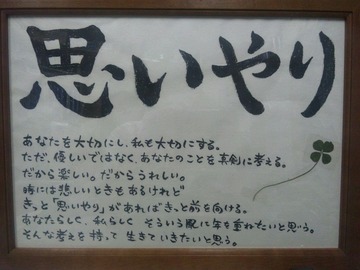 思いやり
あなたを大切にし、私も大切にする。
ただ、優しいではなく、あなたのことを真剣に考える。
だから楽しい。だからうれしい。
時には悲しいときもあるけれど
きっと「思いやり」があればきっと前を向ける。
あなたらしく、私らしく そういう風に年を重ねたいと思う。
そんな考えを持って 生きていきたいと思う。